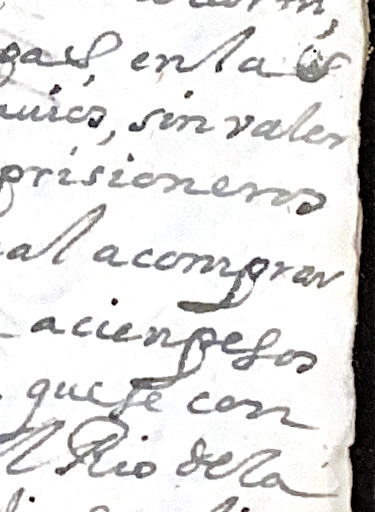 en la
sin valer
prisioneros
al acomprar
acien pesos
que se con
l Rio dela